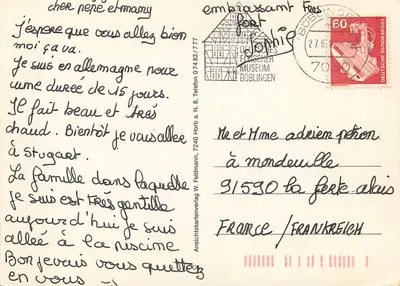 cher pépé et mamy
j'espère que vous allez bien
moi ça va.
Je suis en allemagne pour
une durée de 15 jours.
Il fait beau et très
chaud. Bientôt je vais aller
à Stugart.
La famille dans laquelle
je suis est très gentille
aujourd'hui je suis
allée à la piscine
Bon je vais vous quittez
en vous
embrassant très
fort
Sophie
Ansichtskartenverlag W. Feldmann, 7240 Horb a. N. 8, Telefon 07483/777
MUSEUM
BÖBLINGEN
BÖBLINGEN
27.6
70
60
DEUTSCHE BUNDESPOST
Mr et Mme adrien
à mondeville
91590 la ferte alais
FRANCE / FRANKREICH